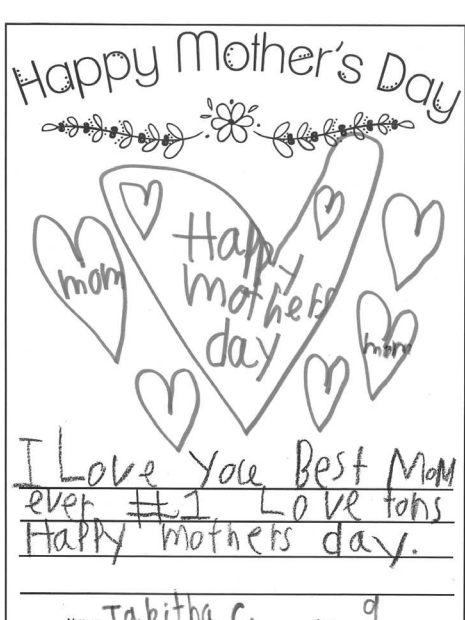 Happy Mother's Day
Happy
mothers
day
mom
mom
I Love You Best MoM
ever #1 Love tons
Happy mothers day.
Tabitha C. 9